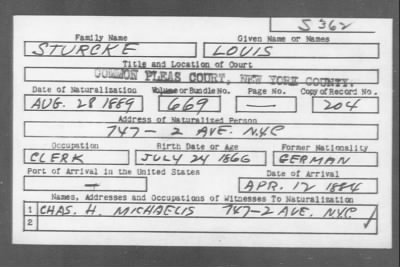 S 362
Family Name Given Name or Names
STURCKE LOUIS
Title and Location of Court
COMMON PLEAS COURT, NEW YORK COUNTY.
Date of Naturalization Volume or Bundle No. Page No. Copy of Record No.
AUG. 28 1889 669 — 204
Address of Naturalized Person
747 - 2 AVE. NYC
Occupation Birth Date or Age Former Nationality
CLERK JULY 24 1866 GERMAN
Port of Arrival in the United States Date of Arrival
— APR. 12 1884
Names, Addresses and Occupations of Witnesses To Naturalization
1 CHAS. H. MICHAELIS 747-2 AVE. NYC
2